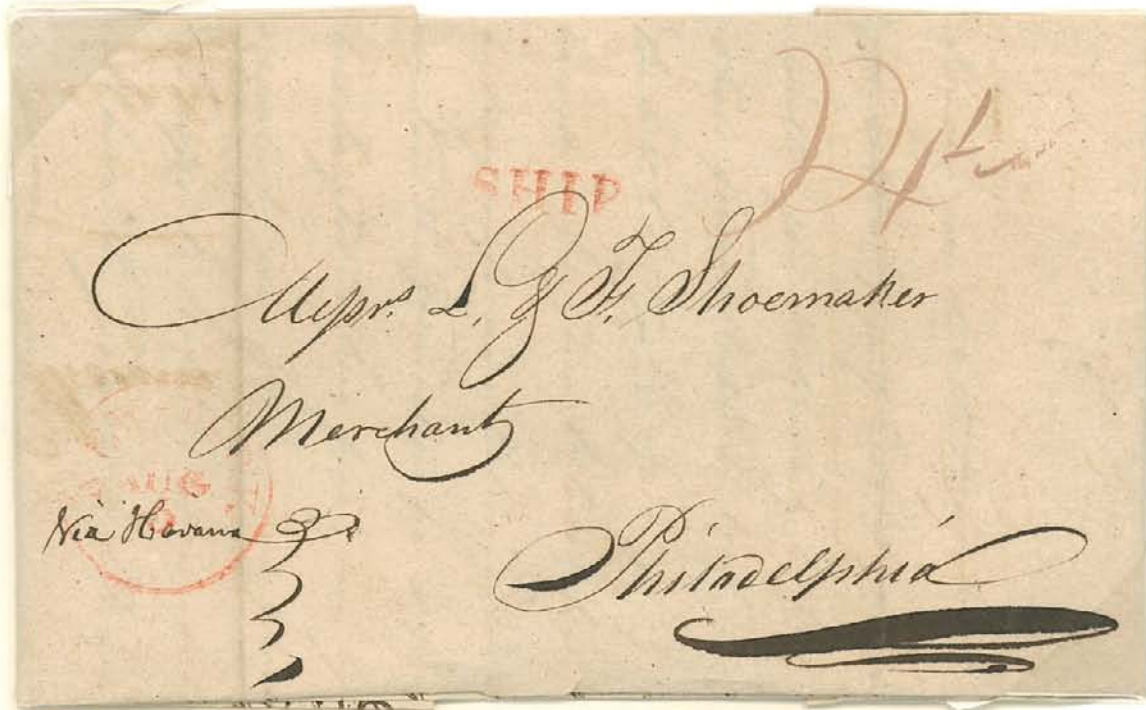 SHIP
Messrs. L. & F. Shoemaker
Merchant
AUG
Via Havana
Philadelphia